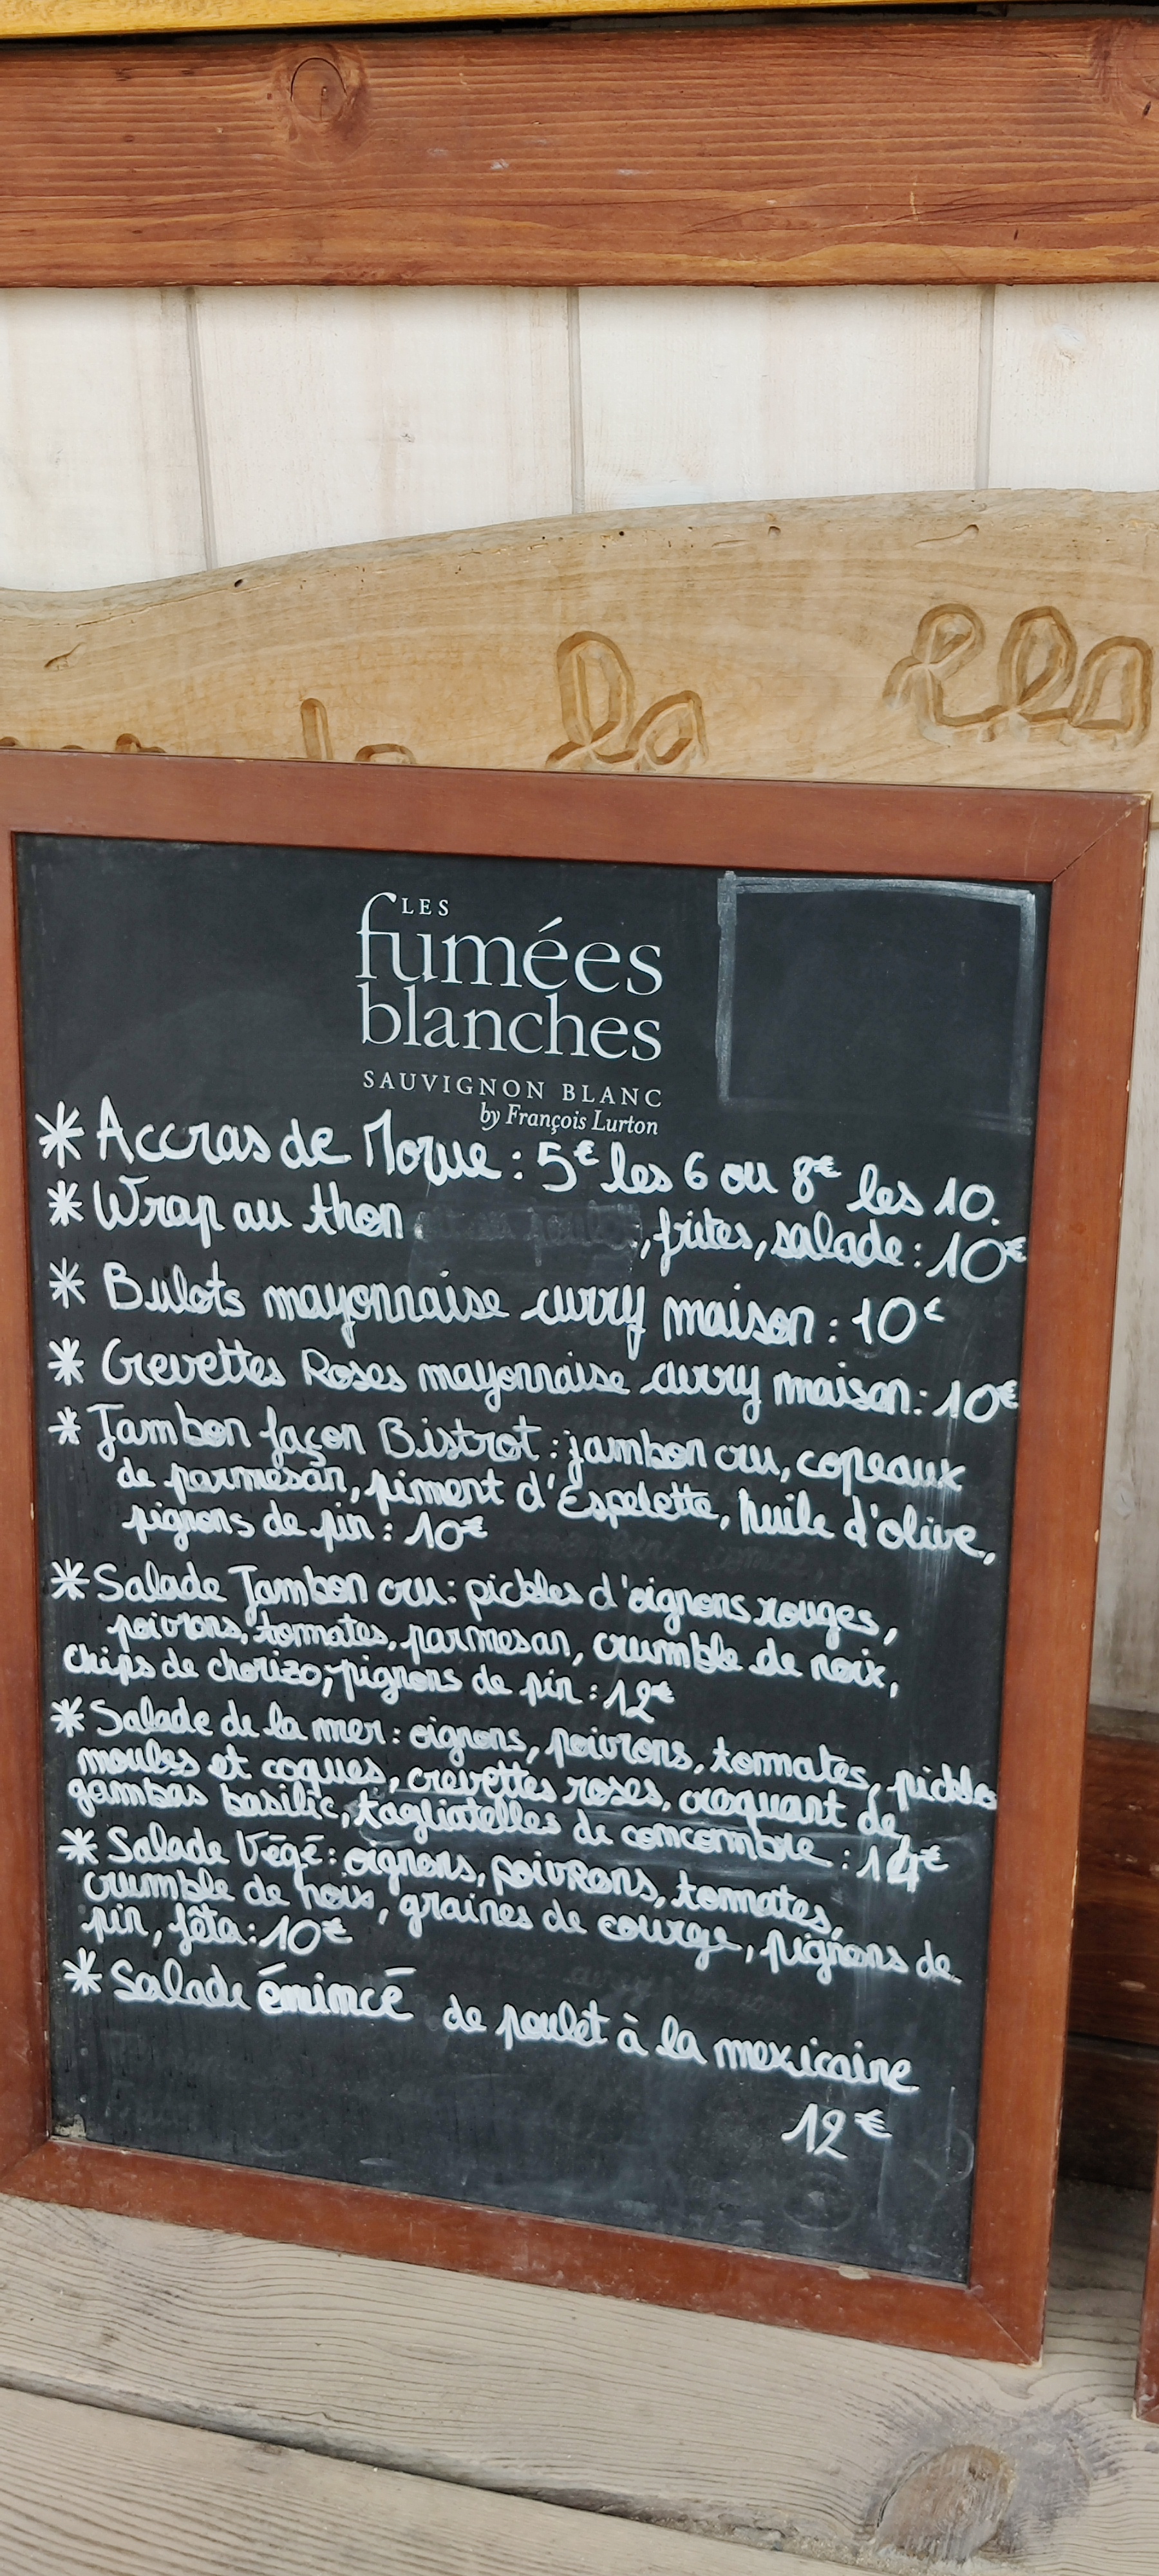 la
LES
fumées
blanches
SAUVIGNON BLANC
by François Lurton
* Accras de Morue : 5€ les 6 ou 8€ les 10.
* Wrap au thon , frites, salade : 10€
* Bulots mayonnaise curry maison : 10€
* Crevettes Roses mayonnaise curry maison : 10€
* Jambon façon Bistrot : jambon cru, copeaux
de parmesan, piment d'Espelette, huile d'olive,
pignons de pin : 10€
* Salade Jambon cru : pickles d'oignons rouges,
poivrons, tomates, parmesan, crumble de noix,
chips de chorizo, pignons de pin : 12€
* Salade de la mer : oignons, poivrons, tomates, pickles
moules et coques, crevettes roses, croquant de
gambas basilic, tagliatelles de concombre : 14€
* Salade Végé : oignons, poivrons, tomates,
crumble de noix, graines de courge, pignons de
pin, fêta : 10€
* Salade émincé de poulet à la mexicaine
12€